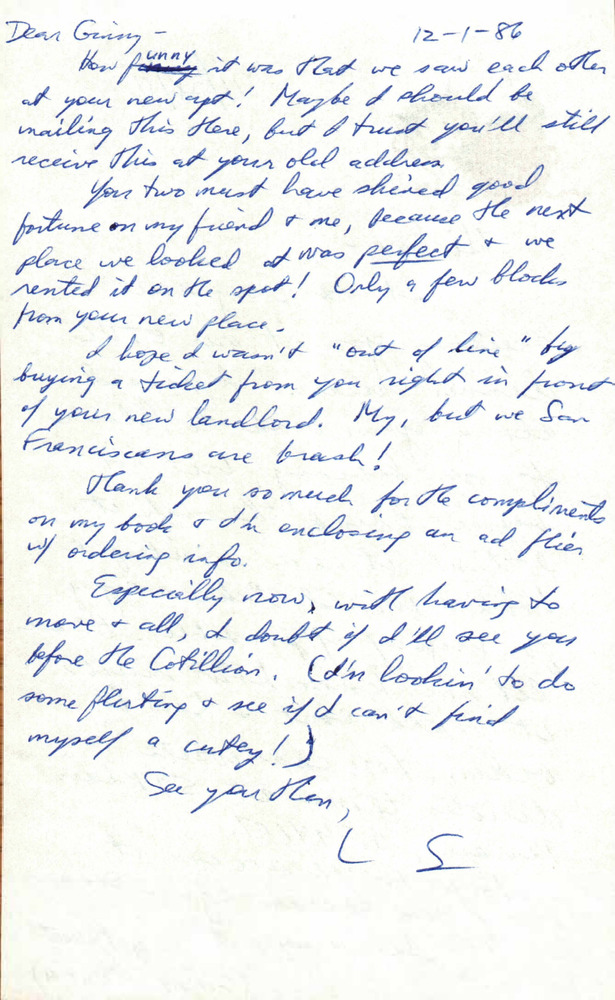 Dear Ginny – 12-1-86
How funny it was that we saw each other
at your new apt! Maybe I should be
mailing this there, but I trust you'll still
receive this at your old address.
You two must have shined good
fortune on my friend + me, because the next
place we looked at was perfect + we
rented it on the spot! Only a few blocks
from your new place.
I hope I wasn't "out of line" by
buying a ticket from you right in front
of your new landlord. My, but we San
Franciscans are brash!
Thank you so much for the compliments
on my book + I'm enclosing an ad flier
w/ ordering info.
Especially now, with having to
move + all, I doubt if I'll see you
before the Cotillion. (I'm lookin' to do
some flirting + see if I can't find
myself a cutey!)
See you then,
L S